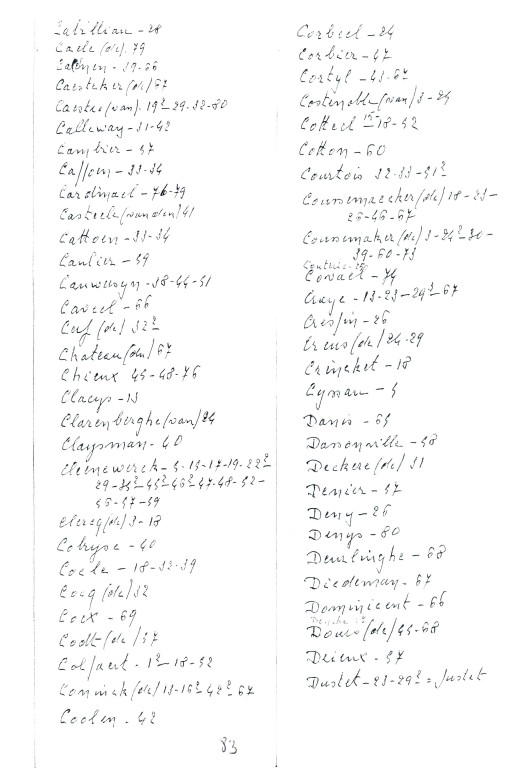 Cabillian - 28
Caele (de). 79
Calmen - 39-66
Caesteker (de) 67
Caestre (van). 19²-29-32-80
Calleway - 31-42
Cambier - 57
Cappoen - 33-34
Cardinael - 76-79
Casteele (vanden) 41
Cattoen - 33-34
Caulier - 59
Cauwersyn - 38-44-51
Caveel - 66
Cerf (de) 32²
Chateau (du) 67
Chieux 45-48-76
Claeys - 13
Clarenberghe (van) 24
Claysman - 40
Cleenewerck - 5-15-17-19-22²
29-35²-45²-46²-47-48-52-
56-57-59
Clercq (de) 3-18
Cobryse - 40
Coele - 18-32-39
Cocq (de) 32
Cocx - 69
Codt (de) 57
Colpaert - 1²-18-52
Coninck (de) 13-16²-42²-67
Coolen - 42
83
Corbeel - 24
Corbier - 47
Cortyl - 43-67
Costenoble (van) 3-24
Cotteel 15-18-52
Cotton - 60
Courtois 32-33-51²
Coussemaecker (de) 18-23-
26-46-67
Coussemaker (de) 3-24²-30-
39-60-73
Covael - 74
Craye - 13-23-29³-67
Crespin - 26
Creus (de) 24-29
Crincket - 18
Cyssau - 5
Danis - 65
Dassonville - 58
Deckere (de) 31
Denier - 57
Deny - 26
Denys - 80
Deurlinghe - 68
Diedeman - 67
Dominicent - 66
Douis (de) 45-68
Drieux - 57
Dustet - 23-29² = Justet